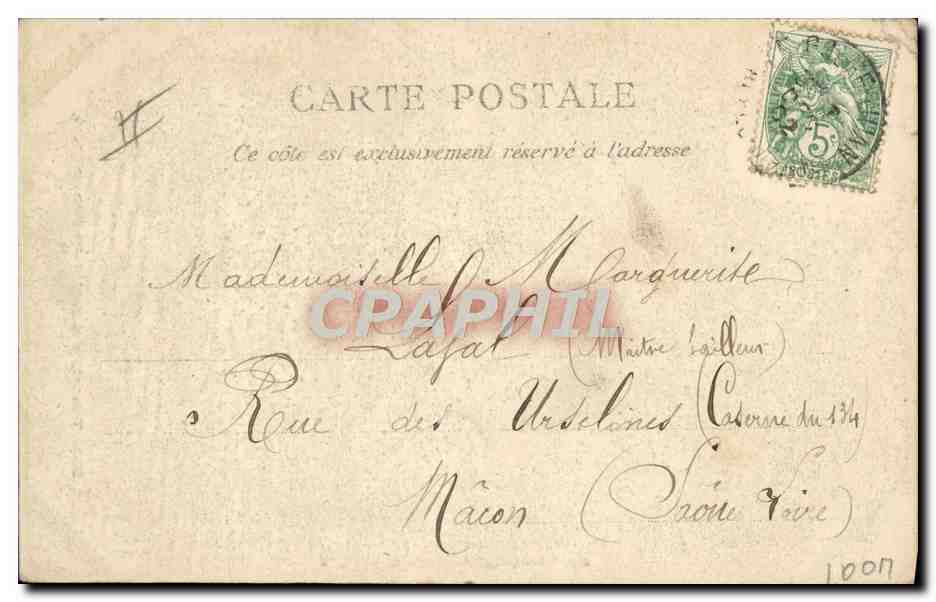 CARTE POSTALE
Ce côté est exclusivement réservé à l'adresse
5c
Mademoiselle Marguerite
CPAPHIL
Lafal (Maître tailleur)
Rue des Urselines (Caserne du 134)
Mâcon (Saône Loire)